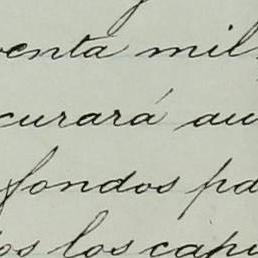 venta mil
curará au
fondos pa
os los capi